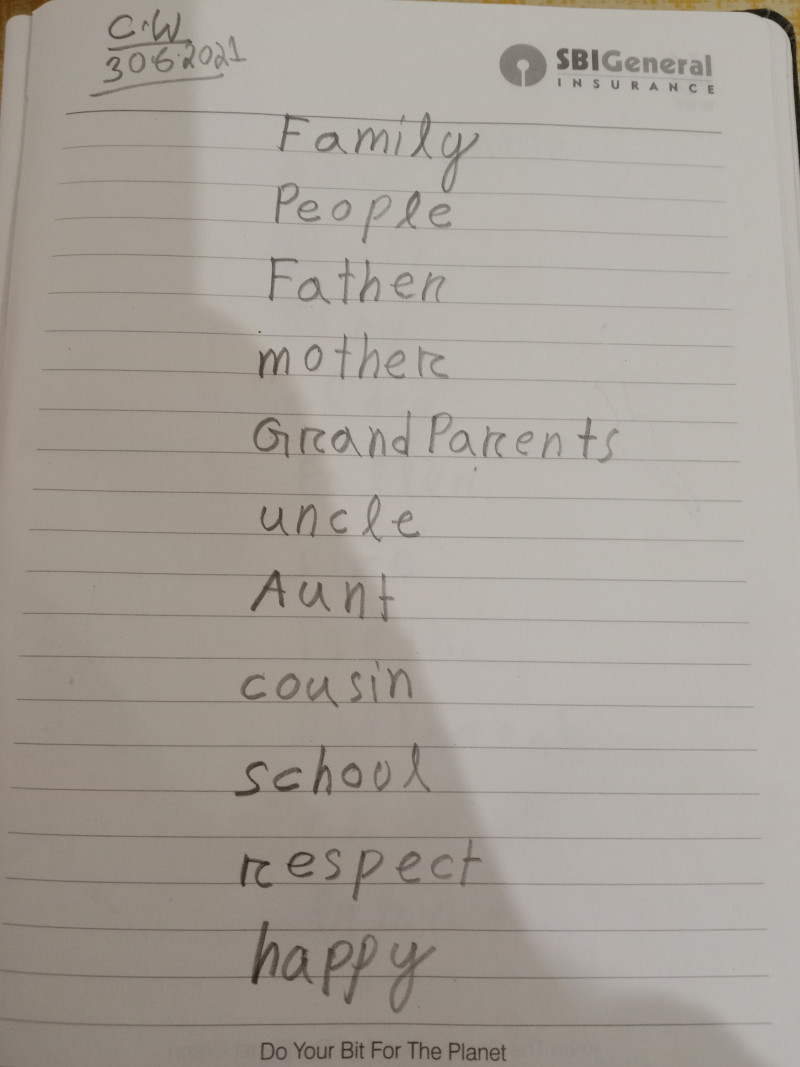 C.W
30.6.2021
SBIGeneral
INSURANCE
Family
People
Father
mother
GrandParents
uncle
Aunt
cousin
school
respect
happy
Do Your Bit For The Planet